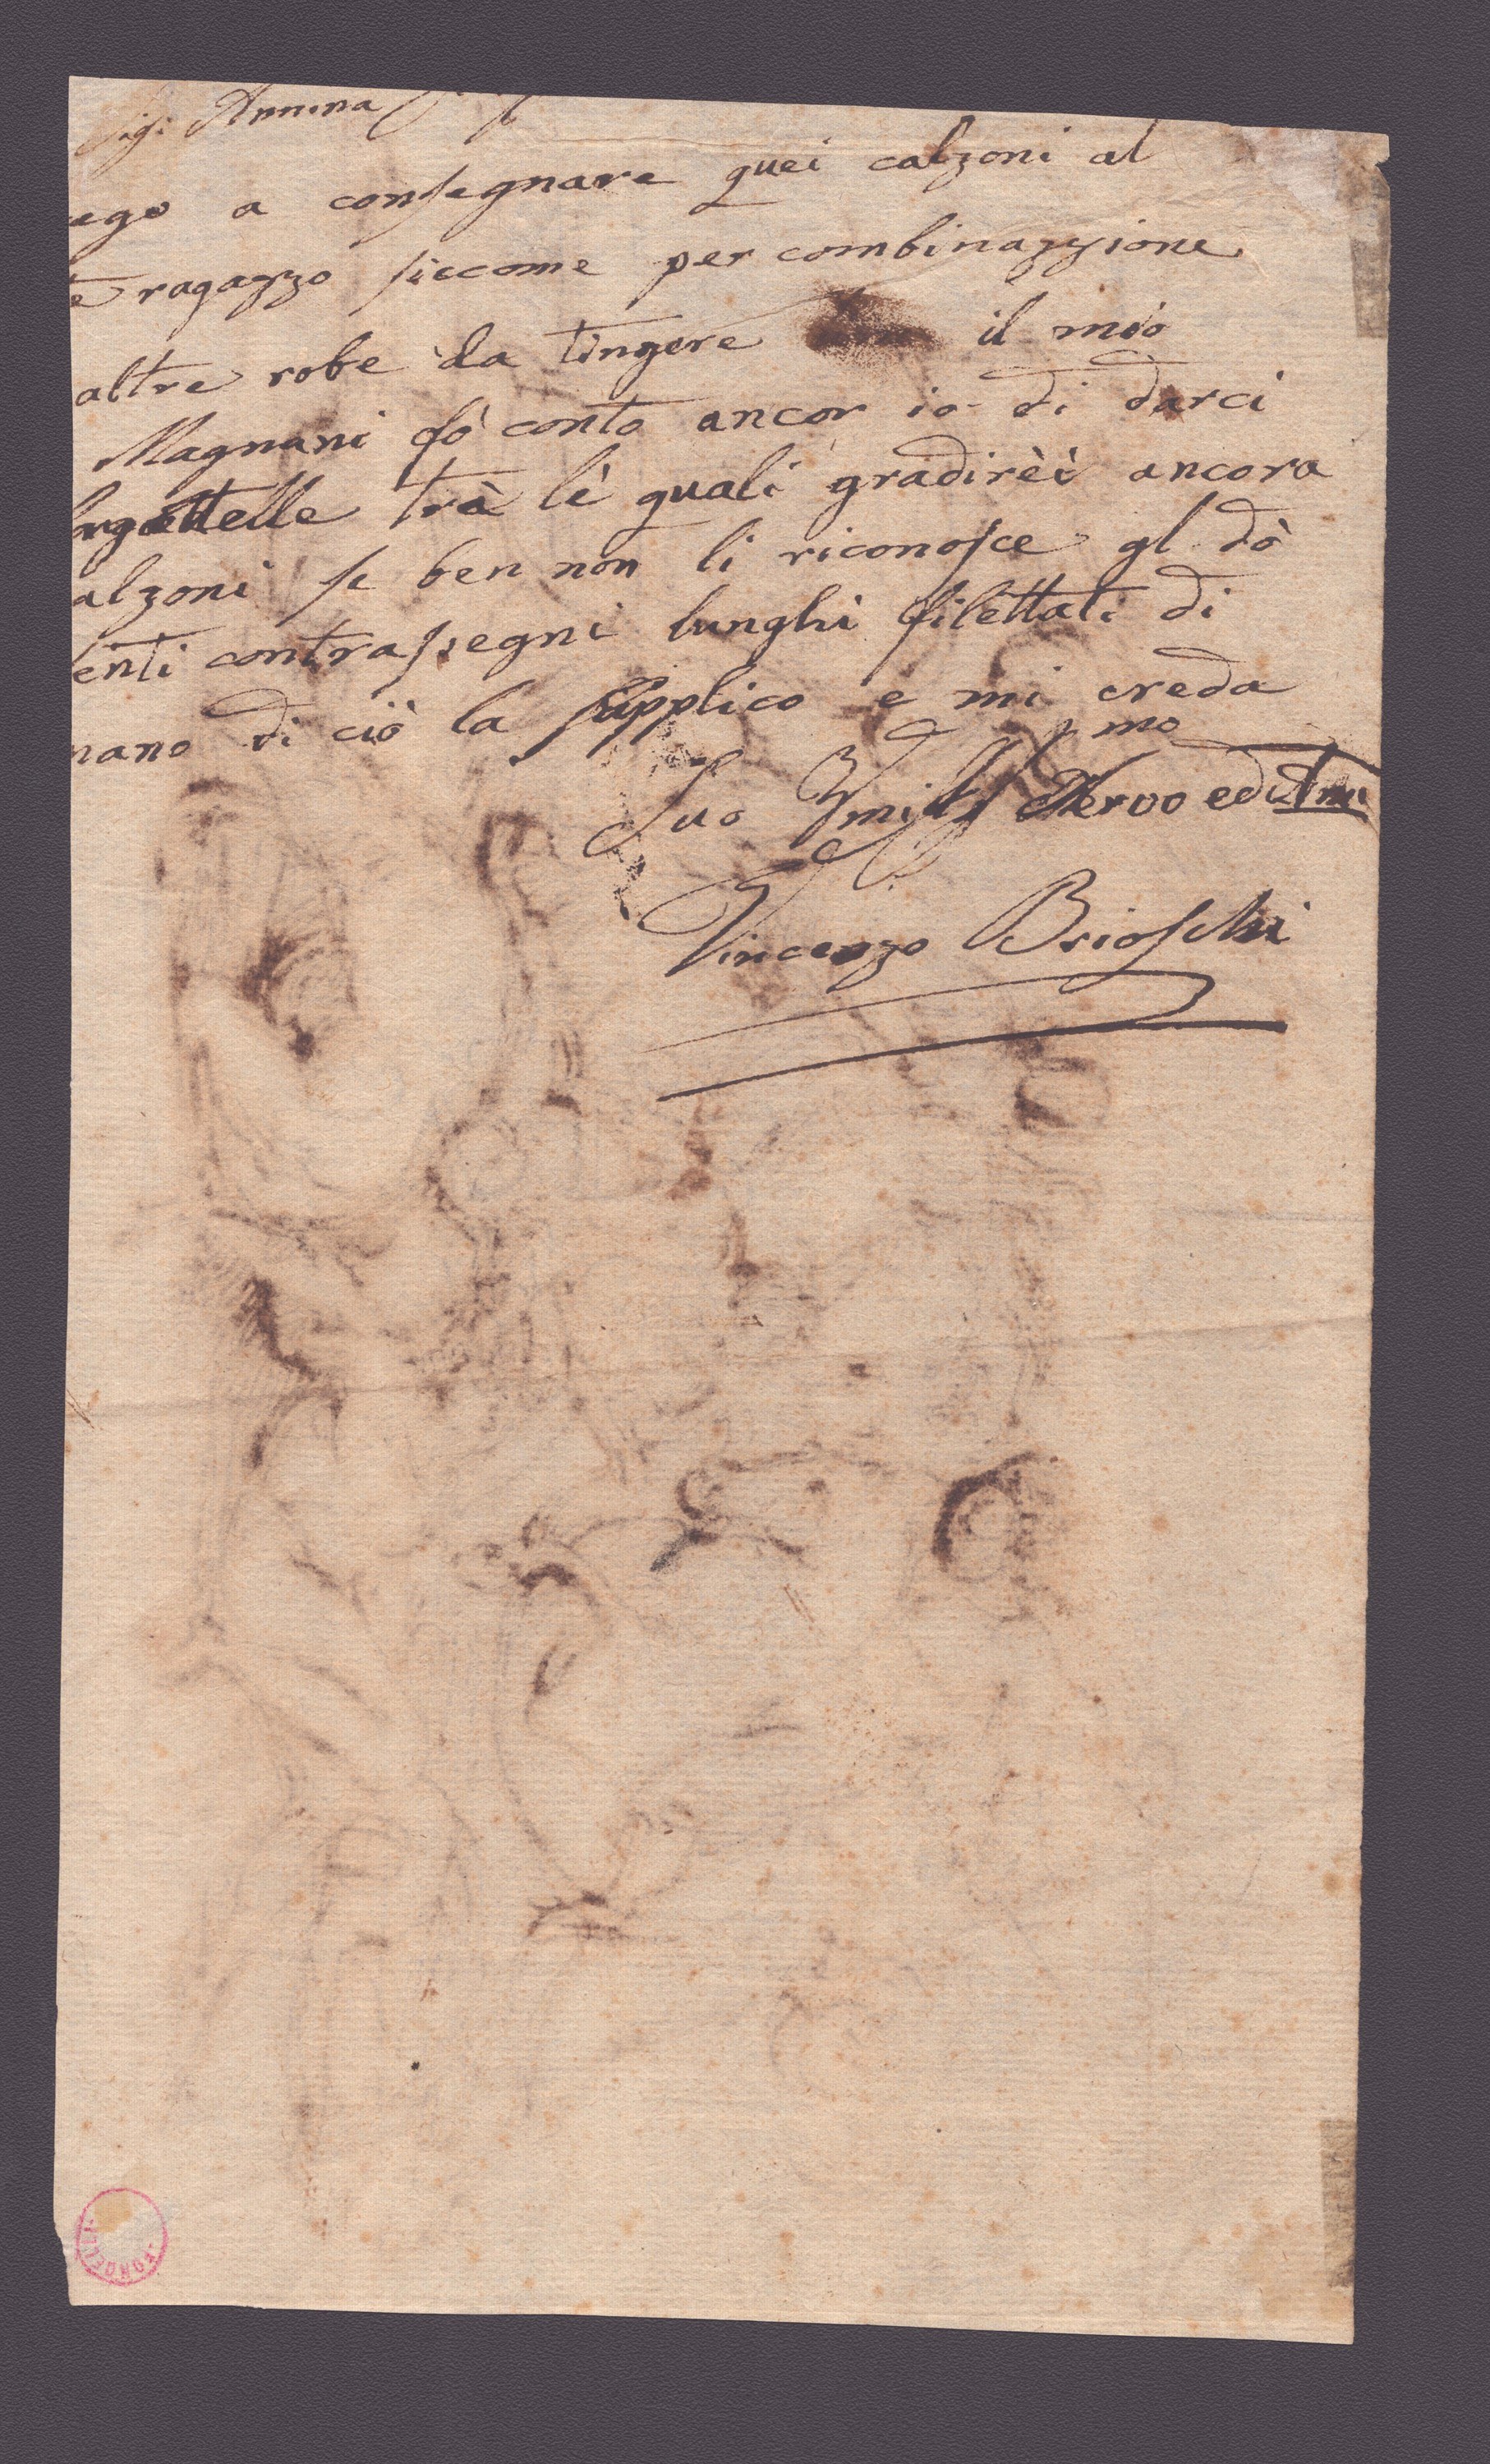 Sig: Annina
ego a consegnare quei calzoni al
te ragazzo siccome per combinazzione
altre robe da tingere il mio
Magnani fò conto ancor io di darci
bagattelle trà lè quali gradirèi ancora
alzoni se ben non li riconosce gl dò
enti contrasegni lunghi filettati di
nano di ciò la supplico e mi creda
Suo Umil Servo ed
mo
Vincenzo Brioschi
RONDELLI